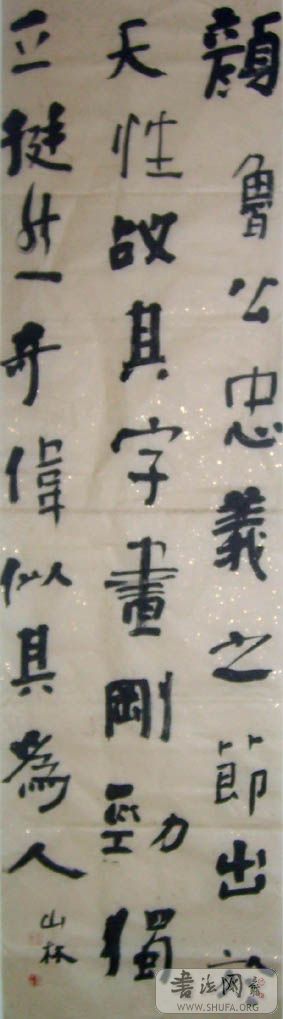 顔魯公忠義之節出於
天性故其字畫剛勁獨
立挺然奇偉似其為人
山林
书法网
WWW.SHUFA.ORG